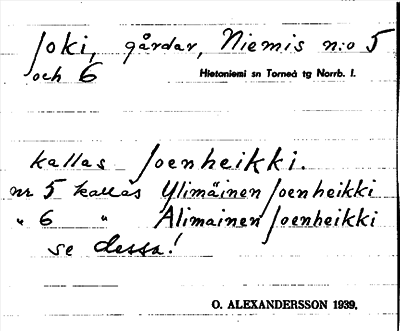 Joki, gårdar, Niemis n:o 5
och 6
Hietaniemi sn Torneå tg Norrb. l.
kallas Joenheikki.
nr 5 kallas Ylimäinen Joenheikki
" 6 " Alimainen Joenheikki
se dessa!
O. ALEXANDERSSON 1939.